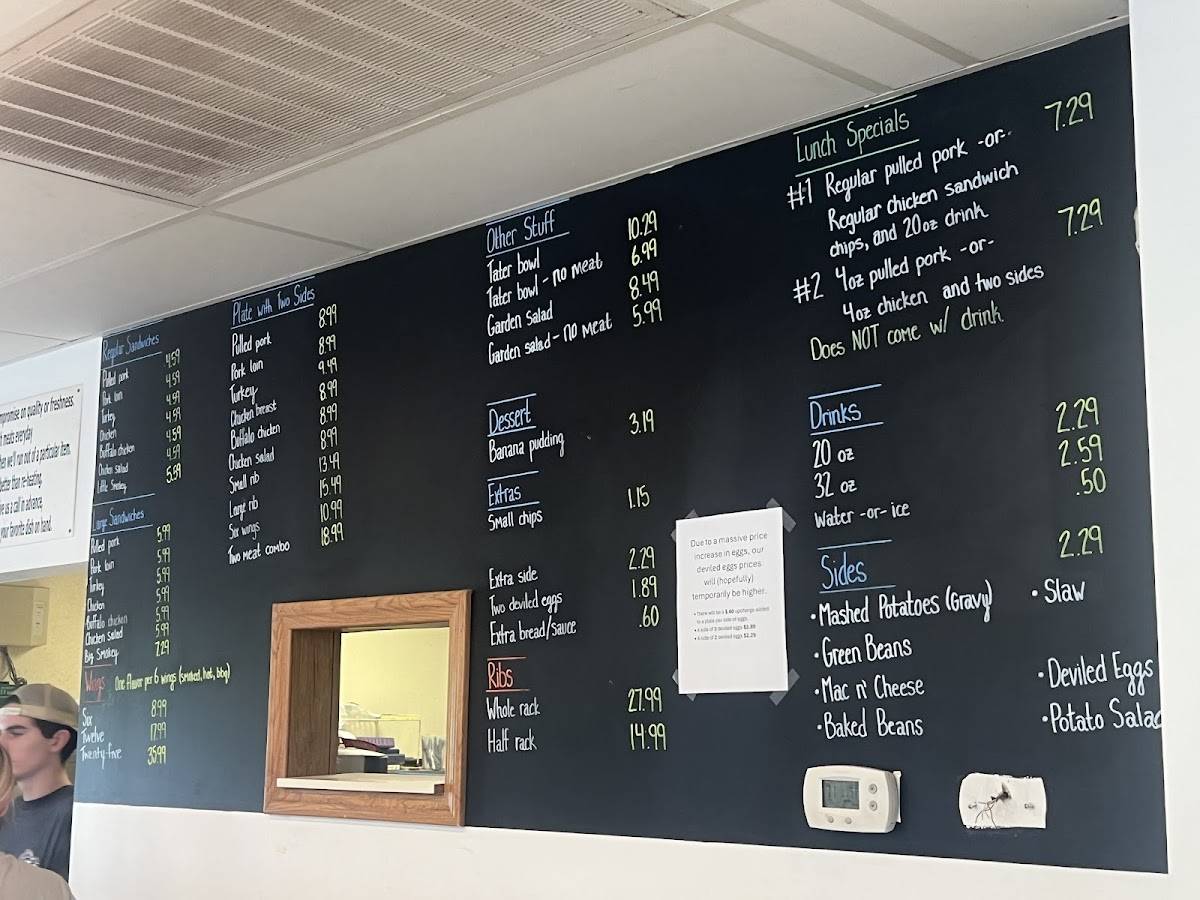 compromise on quality or freshness.
meats everyday
when we'll run out of a particular item.
better than re-heating.
us a call in advance,
your favorite dish on hand.
Regular Sandwiches
Pulled pork 4.59
Pork loin 4.59
Turkey 4.99
Chicken 4.59
Buffalo chicken 4.59
Chicken salad 4.59
Little Smokey 5.89
Large Sandwiches
Pulled pork 5.99
Pork loin 5.99
Turkey 5.99
Chicken 5.99
Buffalo chicken 5.99
Chicken salad 5.99
Big Smokey 7.29
Wings One flavor per 6 wings (smoked, hot, bbq)
Six 8.99
Twelve 17.99
Twenty-five 35.99
Plate with Two Sides
Pulled pork 8.99
Pork loin 8.99
Turkey 9.49
Chicken breast 8.99
Buffalo chicken 8.99
Chicken salad 8.99
Small rib 13.49
Large rib 15.49
Six wings 10.99
Two meat combo 18.99
Other Stuff
Tater bowl 10.29
Tater bowl - no meat 6.99
Garden salad 8.49
Garden salad - no meat 5.99
Dessert
Banana pudding 3.19
Extras
Small chips 1.15
Extra side 2.29
Two deviled eggs 1.89
Extra bread/sauce .60
Ribs
Whole rack 27.99
Half rack 14.99
Due to a massive price
increase in eggs, our
deviled eggs prices
will (hopefully)
temporarily be higher.
• There will be a $.60 upcharge added
to a plate per side of eggs.
• A side of 3 deviled eggs
• A side of 2 deviled eggs $2.25
Lunch Specials
#1 Regular pulled pork -or- 7.29
Regular chicken sandwich
chips, and 20oz drink
#2 4oz pulled pork -or- 7.29
4oz chicken and two sides
Does NOT come w/ drink
Drinks
20 oz 2.29
32 oz 2.59
Water -or- ice .50
Sides 2.29
• Mashed Potatoes (Gravy) • Slaw
• Green Beans
• Mac n' Cheese • Deviled Eggs
• Baked Beans • Potato Salad